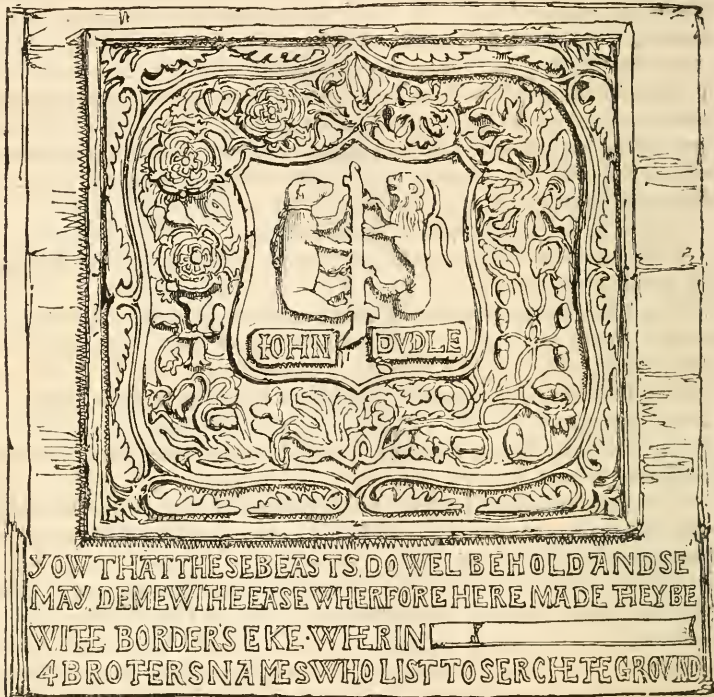 IOHN DVDLE
YOW THAT THESE BEASTS DO WEL BEHOLD AND SE
MAY DEME WITH EASE WHERFORE HERE MADE THEY BE
WITH BORDERS EKE WHERIN
4 BROTHERS NAMES WHO LIST TO SERCHE THE GROVND